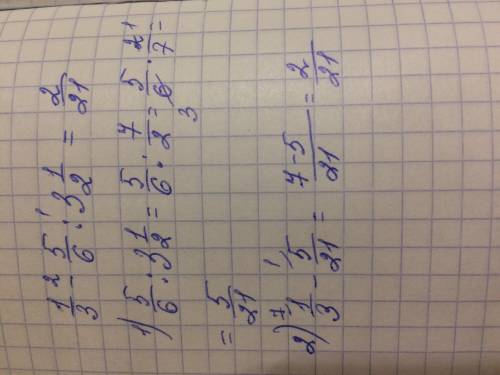 1/3 ²- 5/6 ¹: 3 1/2 = 2/21
1) 5/6 : 3 1/2 = 5/6 : 7/2 = 5/6 3 · 2 1/7 =
= 5/21
2) 1/3 7 - 5/21 1 = 7-5/21 = 2/21